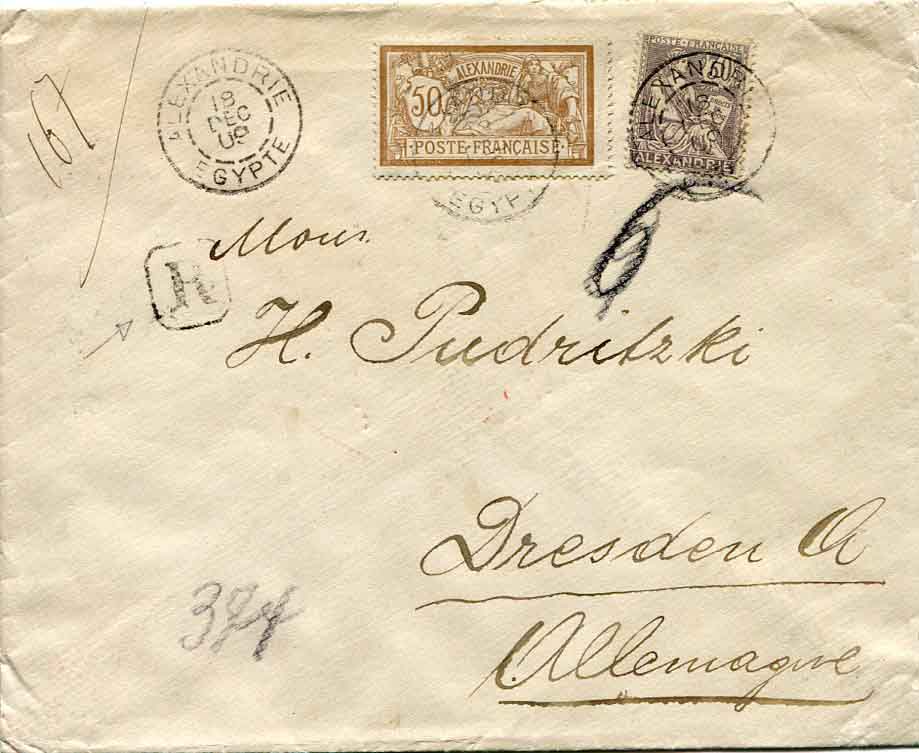 167
ALEXANDRIE
18
DEC
09
EGYPTE
ALEXANDRIE
50
POSTE FRANÇAISE
EGYP
POSTE FRANÇAISE
30
ALEXANDRIE
ALEXAN
18
09
R
Mons
H. Pudritzki
Dresden A
Allemagne